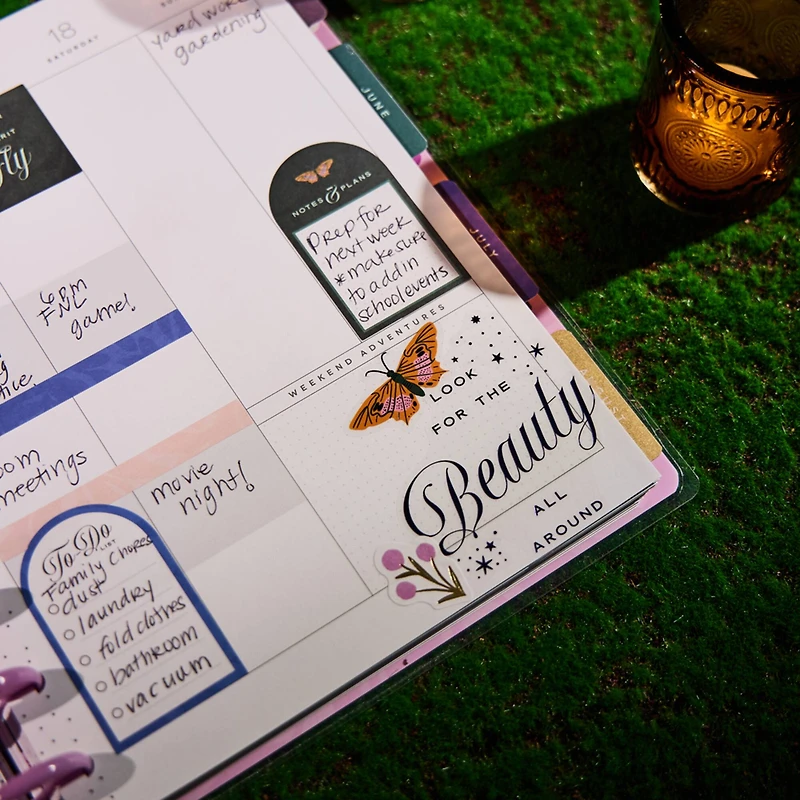 18
SATURDAY
yard work
gardening
JUNE
Fly
NOTES & PLANS
Prep for
next week
*make sure
to add in
school events
JULY
6pm
FNL
game!
WEEKEND ADVENTURES
LOOK
FOR THE
Beauty
ALL
AROUND
meetings
movie
night!
To Do
LIST
Family Chores
dust
laundry
fold clothes
bathroom
vacuum